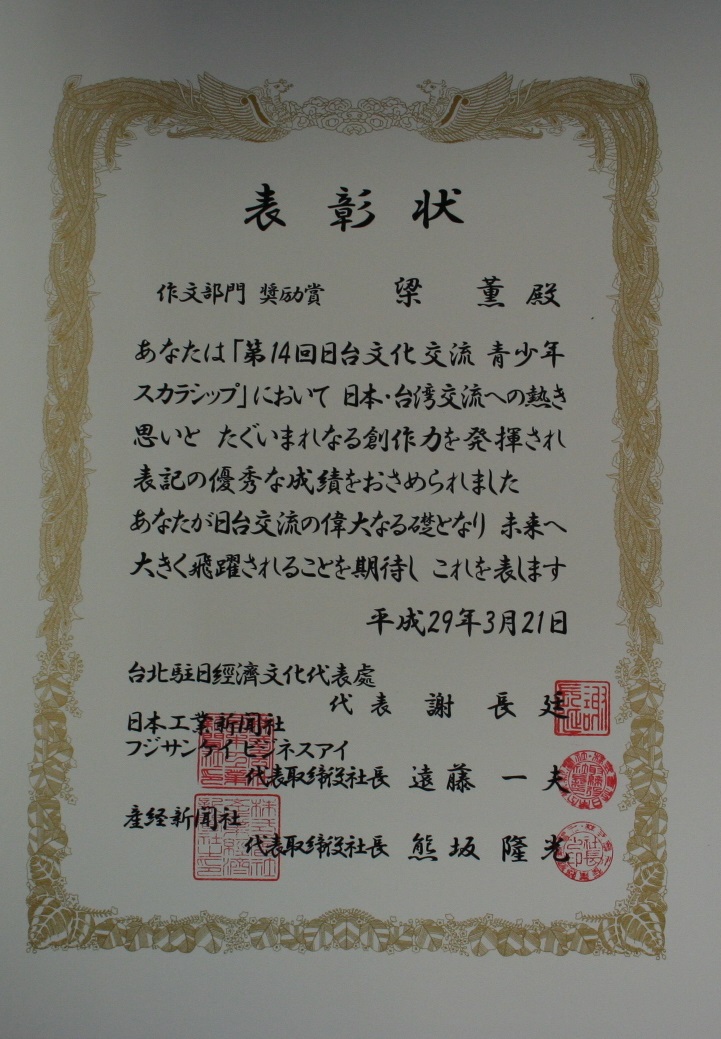 表彰状
作文部門 奨励賞 梁 薫 殿
あなたは「第14回日台文化交流 青少年
スカラシップ」において 日本・台湾交流への熱き
思いと たぐいまれなる創作力を発揮され
表記の優秀な成績をおさめられました
あなたが日台交流の偉大なる礎となり 未来へ
大きく飛躍されることを期待し これを表します
平成29年3月21日
台北駐日經濟文化代表處
代表 謝 長 廷
日本工業新聞社
フジサンケイ ビジネスアイ
代表取締役社長 遠藤 一夫
産経新聞社
代表取締役社長 熊坂 隆光